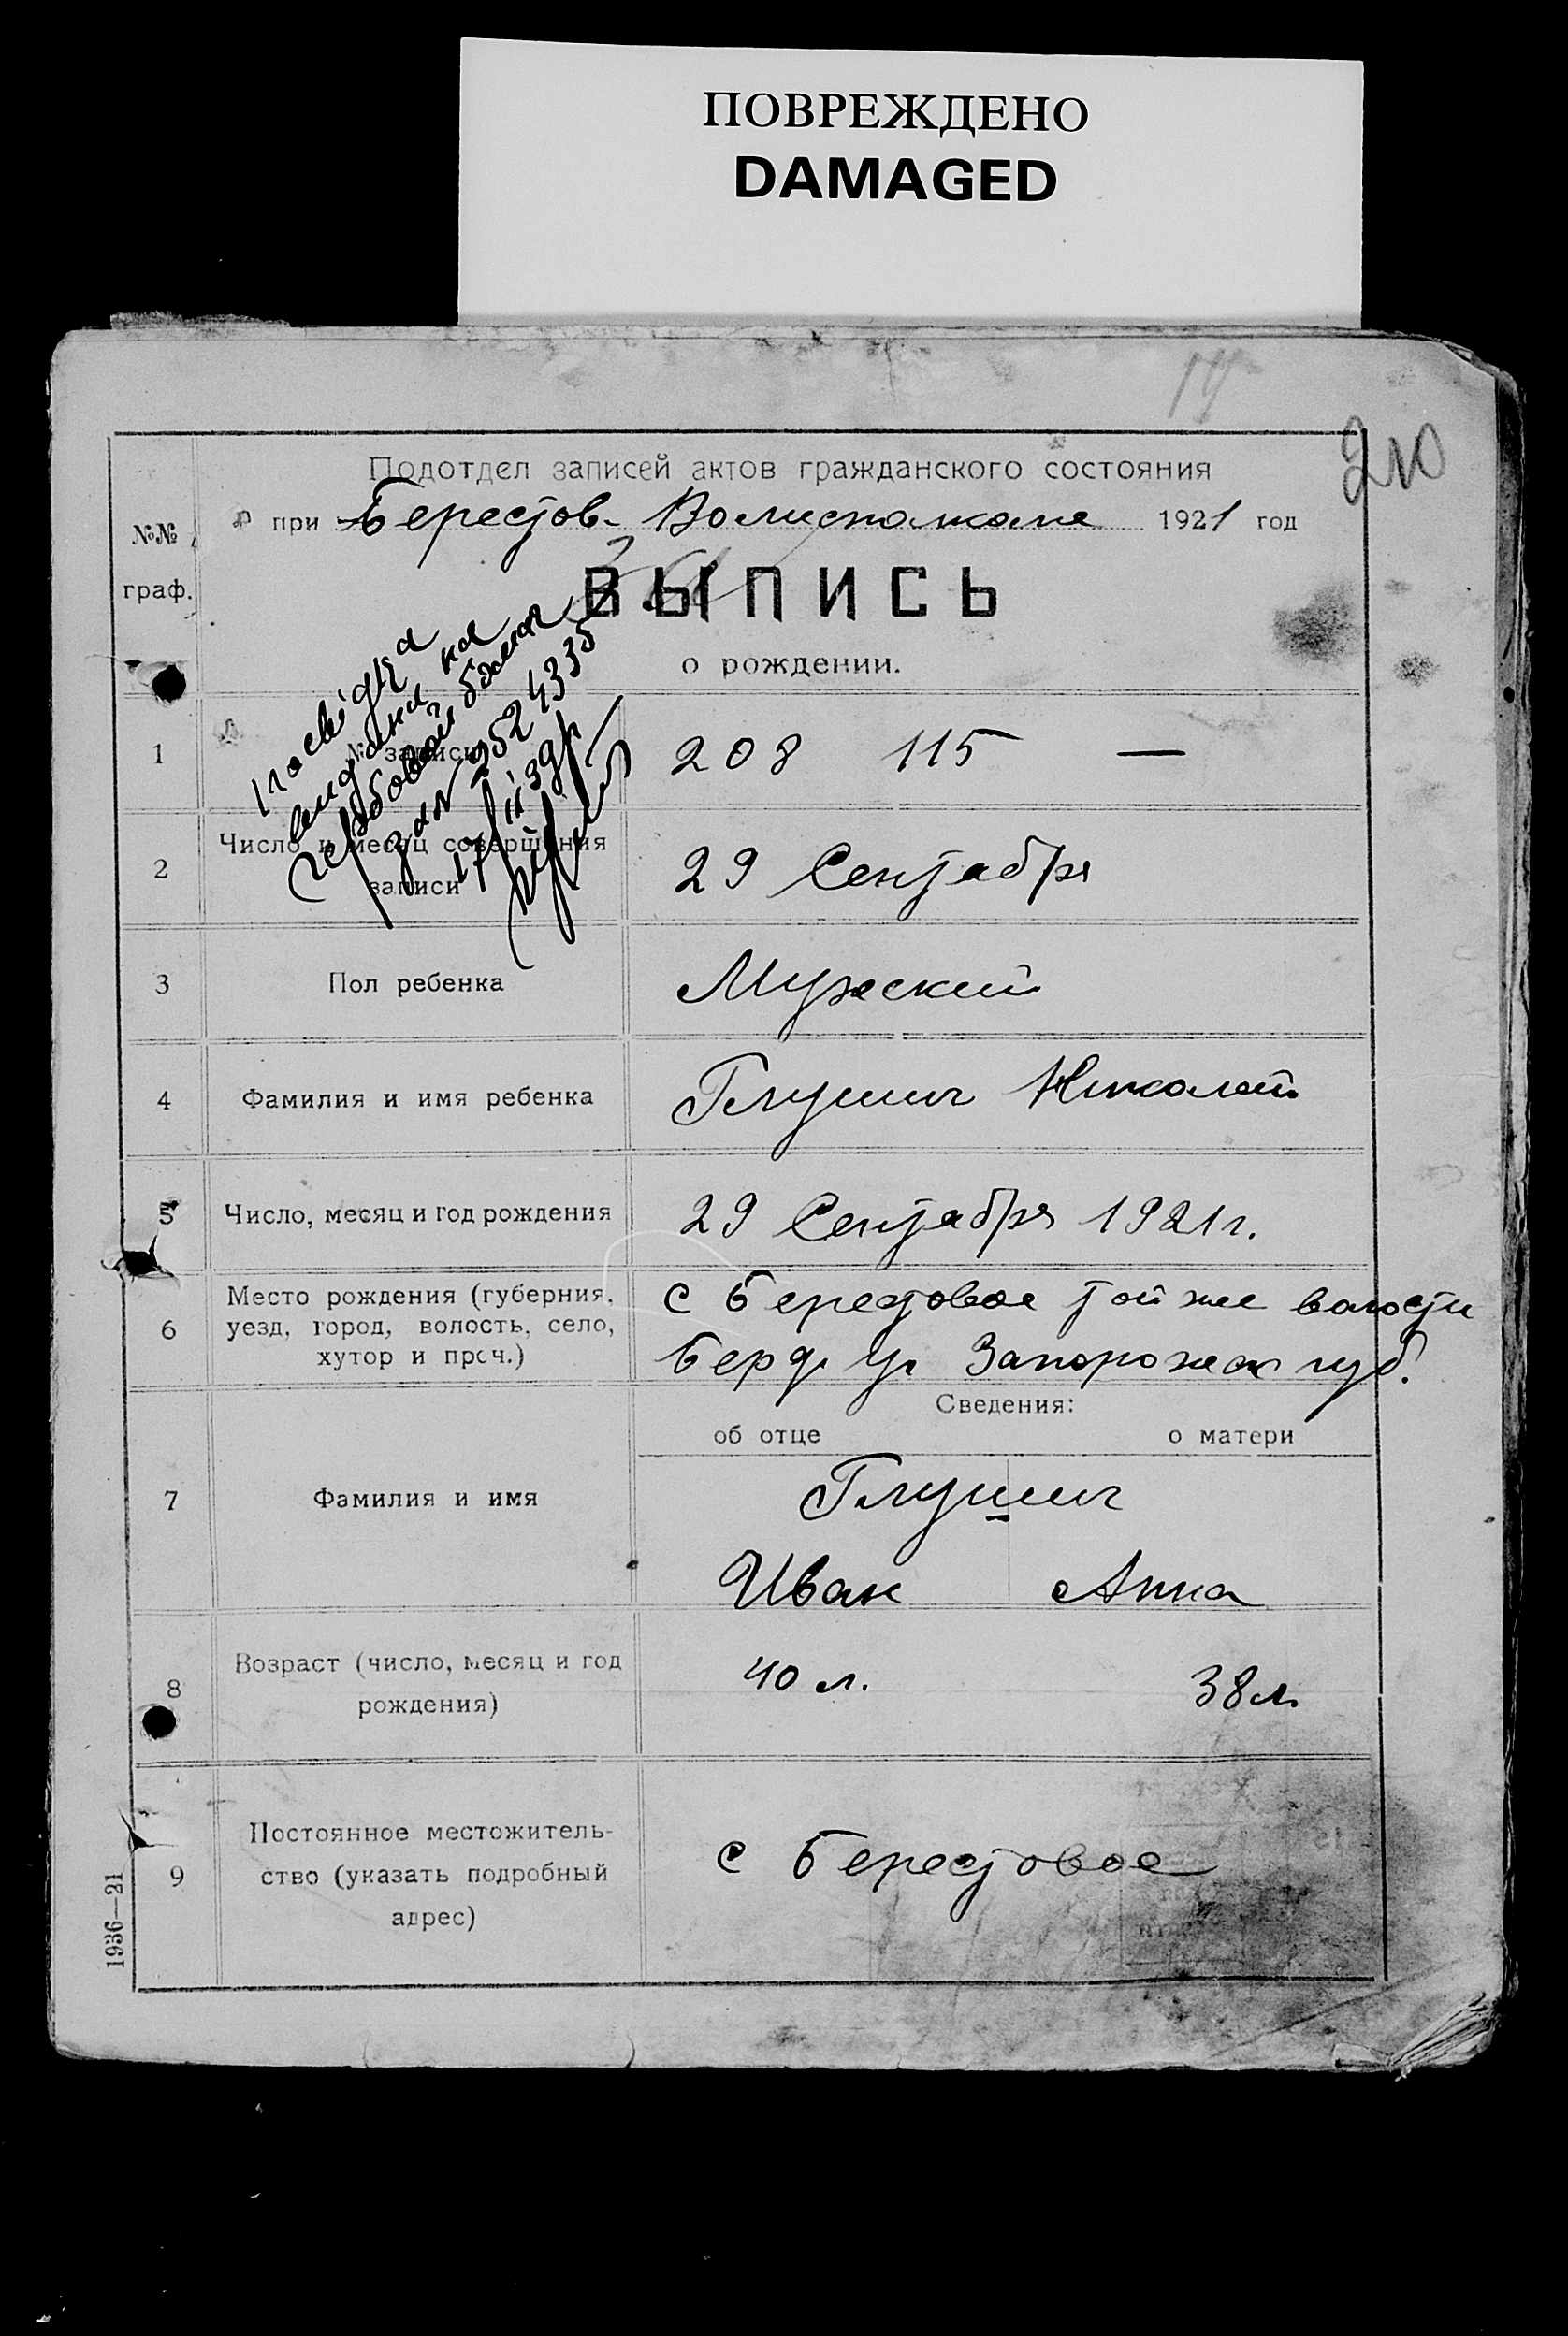 ПОВРЕЖДЕНО
DAMAGED
210
Подотдел записей актов гражданского состояния
при Берестов. Волисполкоме 1921 год
№№
граф.
ВЫПИСЬ
о рождении.
посвідка
видана на
гербовом бланке
за № 4335
1 № записи 208 115 —
2 Число и месяц совершения
записи 29 Сентября
3 Пол ребенка Мужеский
4 Фамилия и имя ребенка Глушич Николай
5 Число, месяц и год рождения 29 Сентября 1921 г.
6 Место рождения (губерния,
уезд, город, волость, село,
хутор и проч.)
с Берестовое той же волости
Берд. у. Запорожск губ.
Сведения:
об отце о матери
7 Фамилия и имя
Глушич
Иван Анна
8 Возраст (число, месяц и год
рождения)
40 л. 38 л.
9 Постоянное местожитель-
ство (указать подробный
адрес)
с Берестовое
1936—21